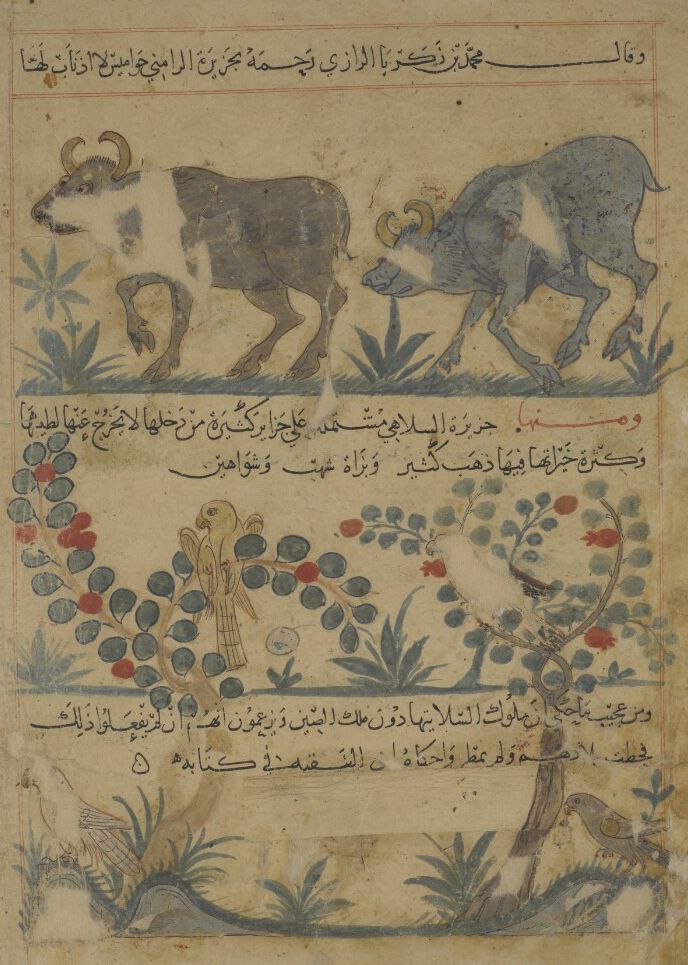 وقال محمد بن زكريا الرازي رحمه بجزيرة الرامني جواميس لا اذناب لها
ومنها جزيرة السلاهي مشتملة على جزاير كثيرة من دخلها لا يخرج عنها لطيبها
وكثرة خيراتها فيها ذهب كثير وبزاة شهب وشواهين
ومن عجيب ما حكى ان ملوك السلا يتهادون ملك الصين ويزعمون انهم ان لم يفعلوا ذلك
قحطت بلادهم ولم تمطر واحكاه ابن الفقيه في كتابه